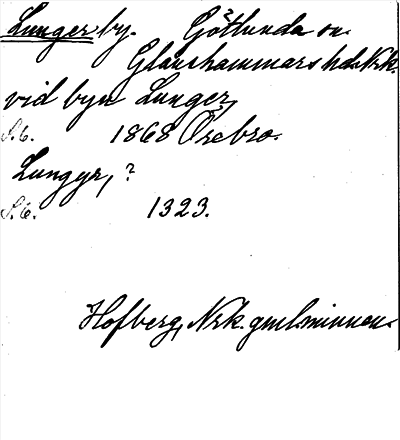 Lunger by. Götlunda sn.
Glanshammars hd. Nrk.
vid byn Lunger,
S. 6. 1868 Örebro.
Lungyr, ?
S. 6. 1323.
Hofberg, Nrk. gml. minnen.